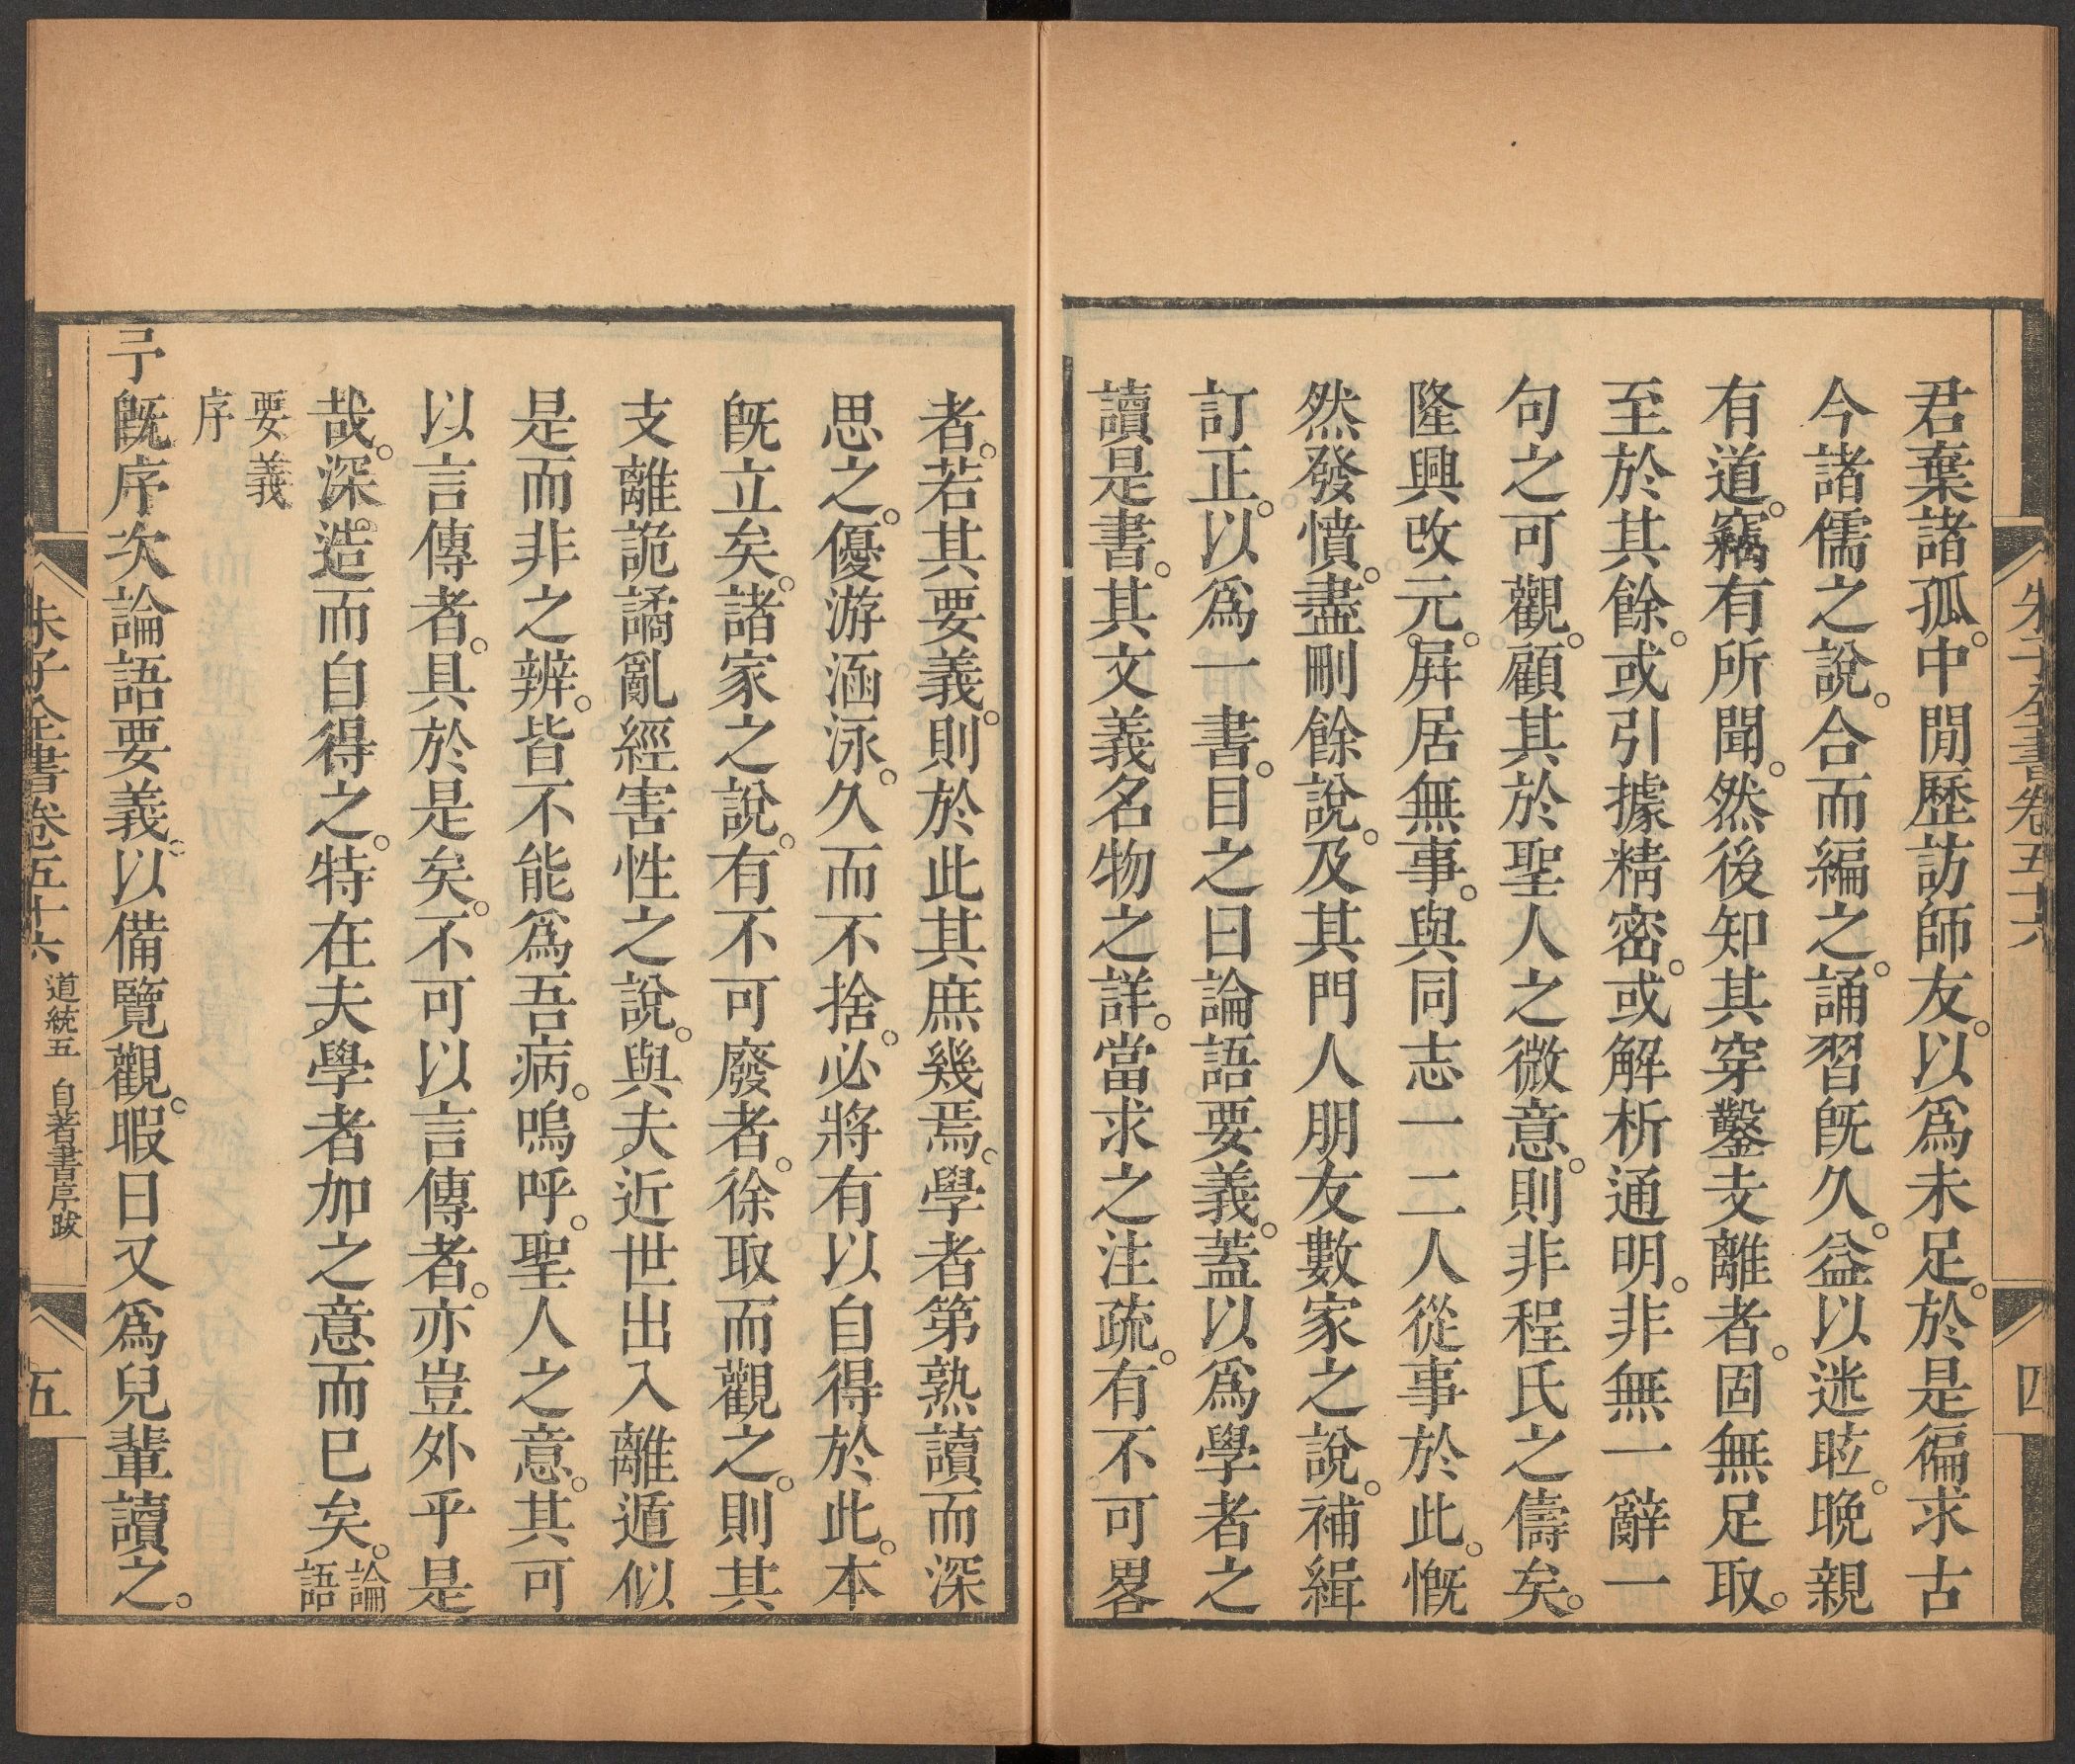 朱子全書卷五十六
四
君棄諸孤。中閒歷訪師友。以爲未足。於是徧求古
今諸儒之說。合而編之。誦習旣久。益以迷眩。晚親
有道。竊有所聞。然後知其穿鑿支離者。固無足取。
至於其餘。或引據精密。或解析通明。非無一辭一
句之可觀。顧其於聖人之微意。則非程氏之儔矣。
隆興改元。屛居無事。與同志一二人從事於此。慨
然發憤。盡刪餘說。及其門人朋友數家之說。補緝
訂正。以爲一書。目之曰論語要義。蓋以爲學者之
讀是書。其文義名物之詳。當求之注疏。有不可畧
者。若其要義。則於此其庶幾焉。學者第熟讀而深
思之。優游涵泳。久而不捨。必將有以自得於此。本
旣立矣。諸家之說。有不可廢者。徐取而觀之。則其
支離詭譎亂經害性之說。與夫近世出入離遁似
是而非之辨。皆不能爲吾病。嗚呼。聖人之意。其可
以言傳者。具於是矣。不可以言傳者。亦豈外乎是
哉。深造而自得之。特在夫學者加之意而已矣。論
語
要義
序
予旣序次論語要義。以備覽觀。暇日又爲兒輩讀之。
朱子全書卷五十六 道統五 自著書序跋
五